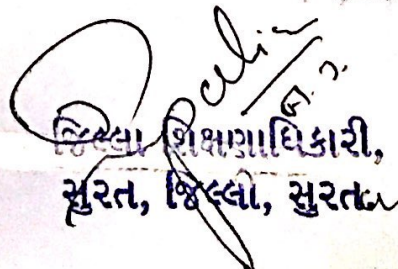 જિલ્લા શિક્ષણાધિકારી,
સુરત, જિલ્લો, સુરત